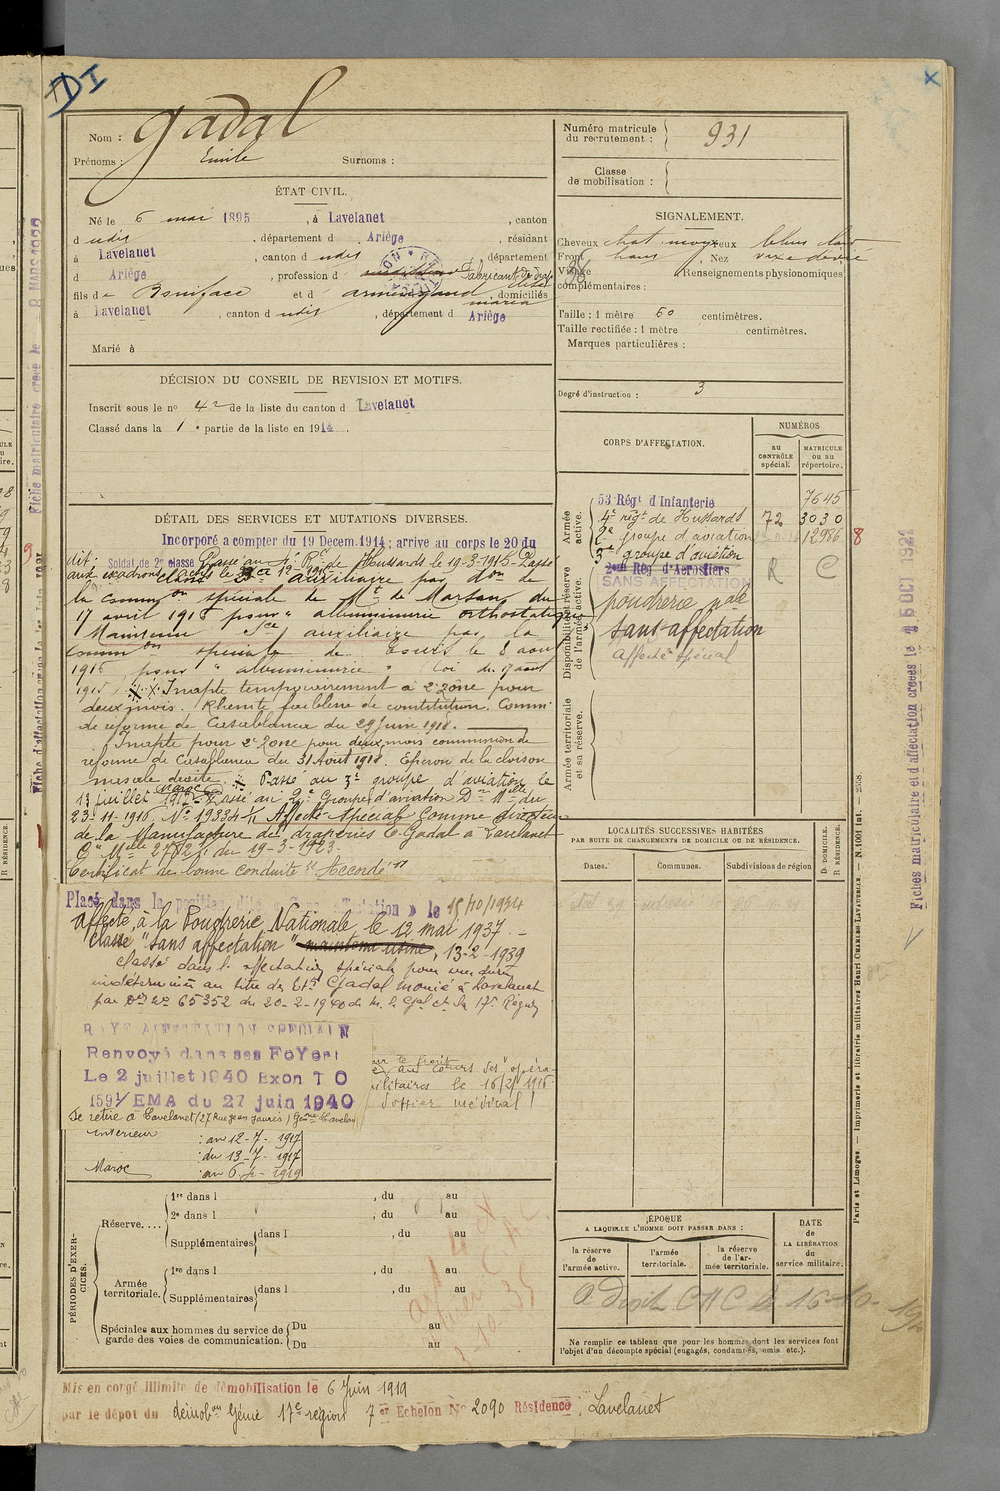 DI
Nom : Gadal
Prénoms : Emile Surnoms :
Numéro matricule du recrutement : 931
Classe de mobilisation :
ÉTAT CIVIL.
Né le 6 mai 1895, à Lavelanet, canton
d udit, département d Ariège, résidant
à Lavelanet, canton d udit, département
d Ariège, profession d Fabricant de
fils de Boniface et d Armengaud Elise Maria, domiciliés
à Lavelanet, canton d udit, département d Ariège
Marié à
SIGNALEMENT.
Cheveux chat moy yeux bleus
Front haut, Nez
Visage Renseignements physionomiques
complémentaires :
Taille : 1 mètre 60 centimètres.
Taille rectifiée : 1 mètre centimètres.
Marques particulières :
Degré d'instruction : 3
DÉCISION DU CONSEIL DE REVISION ET MOTIFS.
Inscrit sous le n° 42 de la liste du canton d Lavelanet
Classé dans la 1e partie de la liste en 1914.
CORPS D'AFFECTATION.
NUMÉROS
au CONTRÔLE spécial.
MATRICULE ou au répertoire.
Armée active.
53 Régt d'Infanterie 7645
4e régt de Hussards 72 3030
2e groupe d'aviation 12986 8
3e groupe d'aviation
Disponibilité et réserve de l'armée active.
2eme Rég d'Aérostiers R C
SANS AFFECTATION
poudrerie nale
Sans affectation
Affecté spécial
Armée territoriale et sa réserve.
DÉTAIL DES SERVICES ET MUTATIONS DIVERSES.
Incorporé a compter du 19 Décem. 1914 ; arrivé au corps le 20 du
dit ; Soldat de 2e classe Passé au 4e Rt de Hussards le 19-3-1915. Passé
auxiliaire par don de
la common spéciale de Mt de Marsan du
17 avril 1915 pour "albuminurie orthostatique"
Maintenu Sce auxiliaire par la
common spéciale de Tours le 8 aout
1915 pour "albuminurie" Loi du 17 aout
1915 Inapte temporairement à 2e zone pour
deux mois. Rhinite faiblesse de constitution. Commn
de réforme de Casablanca du 29 Juin 1918.
Inapte pour 2e Zone pour deux mois commission de
réforme de Casablanca du 31 Août 1918. Eperon de la cloison
nasale droite. Passé au 3e groupe d'aviation le
13 juillet Maroc Passé au 2e Groupe d'aviation Dn Mlle du
23-11-1916, N° 19334 1/1 Affecté Spécial comme directeur
de la Manufacture de draperies E. Gadal à Lavelanet
Cre Mlle 2782 du 19-3-1923.
Certificat de bonne conduite "Accordé"
Placé dans la position dite « sans affectation » le 15/10/1934
Affecté à la Poudrerie Nationale le 12 mai 1937.
Classé "Sans affectation" maintenu usine, 13-2-1939
Classé dans l'affectation spéciale pour une durée
indéterminée au titre des Ets Gadal à Lavelanet
par Don N° 65352 du 20-2-1940 de M. le Gal Ct la 17e Région
RAYÉ AFFECTATION SPECIALE
Renvoyé dans ses Foyers
Le 2 juillet 1940 Exon T O
1591/EMA du 27 juin 1940
Se retire à Lavelanet (27 Rue Jean Jaurès) Gnerie Lavelanet
au cours des opéra
militaires le 16/2/1916
dossier médical !
Intérieur : au 12-7-1917
: du 13-7-1917
Maroc : au 6-4-1919
LOCALITÉS SUCCESSIVES HABITÉES
PAR SUITE DE CHANGEMENTS DE DOMICILE OU DE RÉSIDENCE.
Dates. Communes. Subdivisions de région
D. DOMICILE. R. RÉSIDENCE.
PÉRIODES D'EXERCICES.
Réserve....
1re dans l , du au
2e dans l , du au
Supplémentaires dans l , du au
Armée territoriale.
1re dans l , du au
Supplémentaires dans l , du au
Spéciales aux hommes du service de garde des voies de communication.
Du au
Du au
ÉPOQUE
A LAQUELLE L'HOMME DOIT PASSER DANS :
la réserve de l'armée active.
l'armée territoriale.
la réserve de l'armée territoriale.
DATE de LA LIBÉRATION du service militaire.
A Droit CHC le 16-10-
Ne remplir ce tableau que pour les hommes dont les services font
l'objet d'un décompte spécial (engagés, condamnés, omis etc.).
Mis en congé illimité de démobilisation le 6 Juin 1919
par le dépôt du démobon Génie 17e région 7er Echelon N° 2090 Résidence : Lavelanet
Fiche matriculaire créée le 8 MARS 1922
Fiches matriculaire et d'affectation créées le 15 OCT 1921
Paris et Limoges. — Imprimerie et librairie militaires Henri CHARLES-LAVAUZELLE. — N. 1001 Int. — 2538.